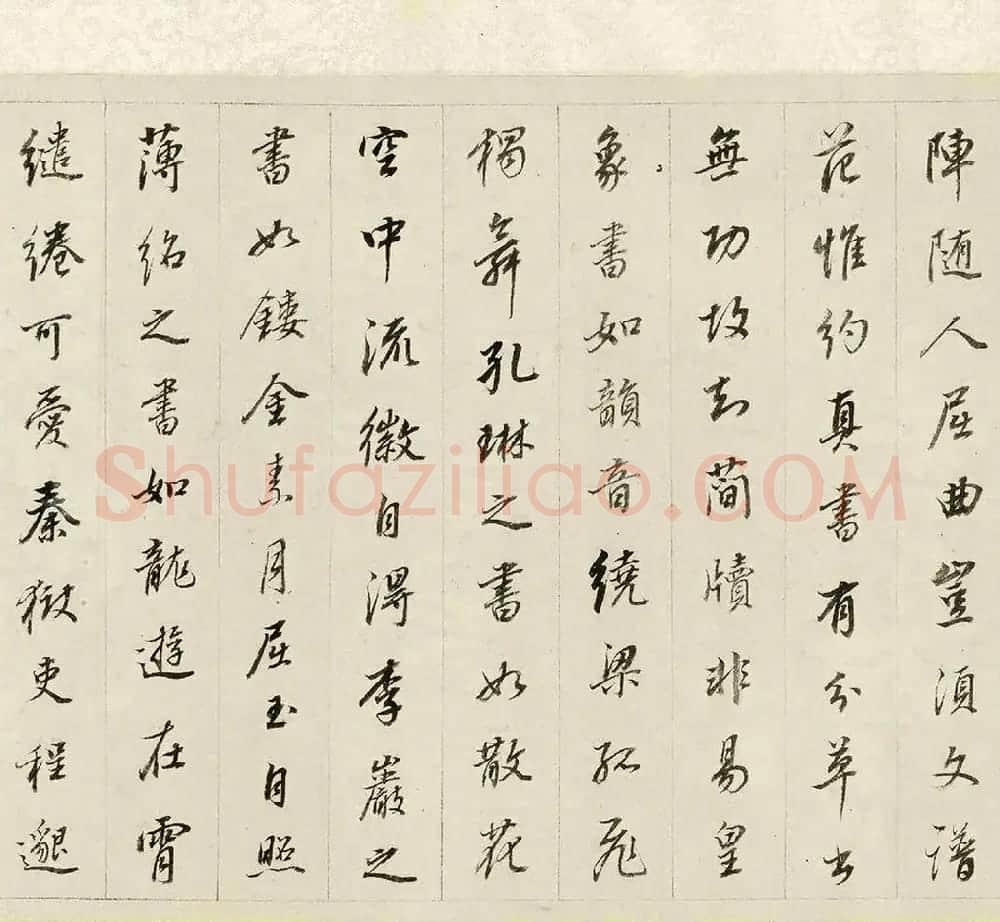 陣随人屈曲豈須文譜
范惟約真書有分草書
無功故知簡牘非易皇
象書如韻音繞梁孤飛
獨舞孔琳之書如散花
空中流徽自得李巖之
書如鏤金素月屈玉自照
薄紹之書如龍遊在霄
繾綣可愛秦獄吏程邈
Shufaziliao.COM